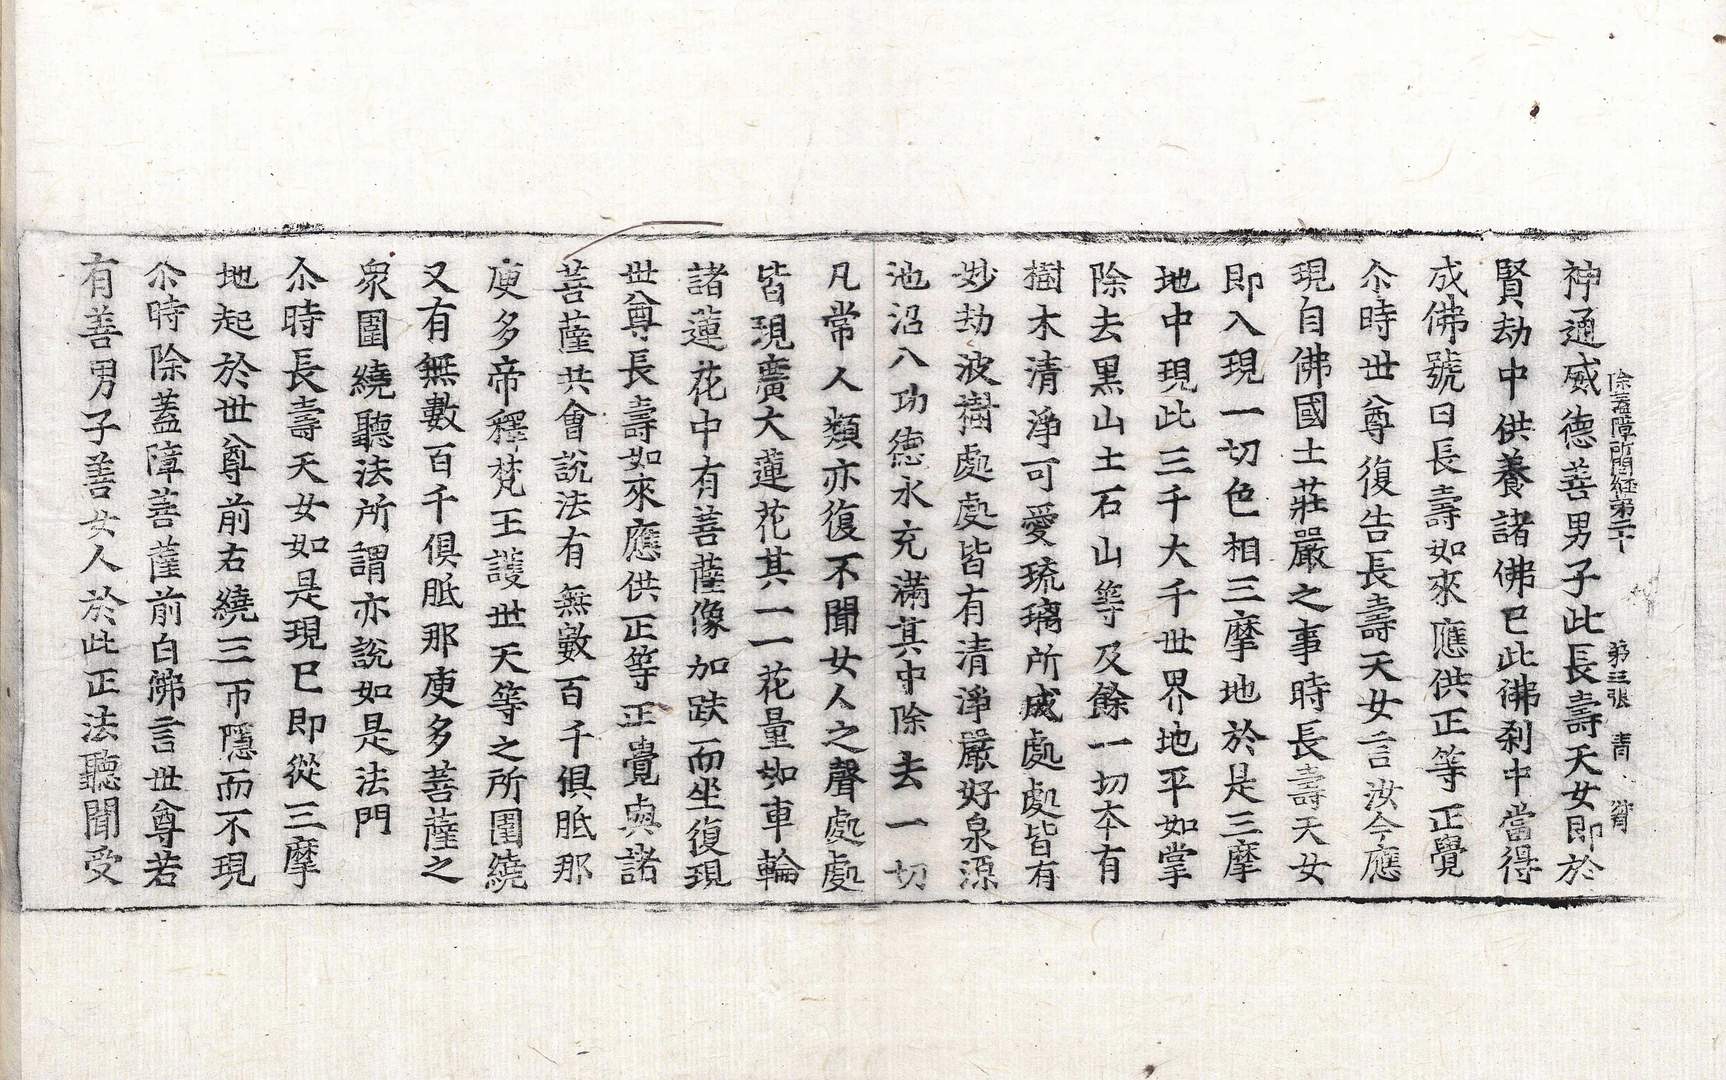 除蓋障所問経第二十 第三張 青
神通威德善男子此長壽天女即於
賢劫中供養諸佛已此佛剎中當得
成佛號曰長壽如來應供正等正覺
尒時世尊復告長壽天女言汝今應
現自佛國土莊嚴之事時長壽天女
即入現一切色相三摩地於是三摩
地中現此三千大千世界地平如掌
除去黑山土石山等及餘一切本有
樹木清淨可愛琉璃所成處處皆有
妙劫波樹處處皆有清淨嚴好泉源
池沼八功德水充滿其中除去一切
凡常人類亦復不聞女人之聲處處
皆現廣大蓮花其一一花量如車輪
諸蓮花中有菩薩像加趺而坐復現
世尊長壽如來應供正等正覺與諸
菩薩共會說法有無數百千俱胝那
庾多帝釋梵王護世天等之所圍繞
又有無數百千俱胝那庾多菩薩之
衆圍繞聽法所謂亦說如是法門
尒時長壽天女如是現已即從三摩
地起於世尊前右繞三帀隱而不現
尒時除蓋障菩薩前白佛言世尊若
有善男子善女人於此正法聽聞受